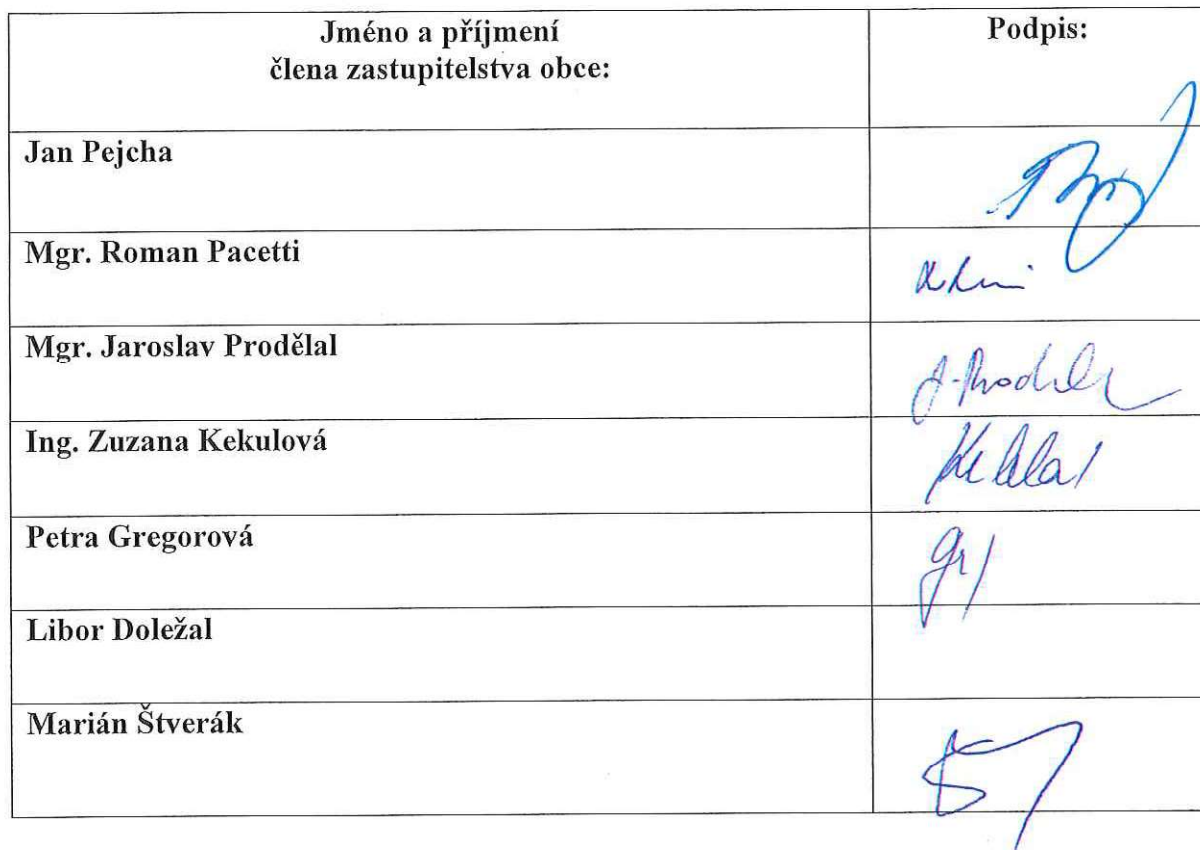 Jméno a příjmení
člena zastupitelstva obce:
Podpis:
Jan Pejcha
Mgr. Roman Pacetti
Mgr. Jaroslav Prodělal
Ing. Zuzana Kekulová
Petra Gregorová
Libor Doležal
Marián Štverák